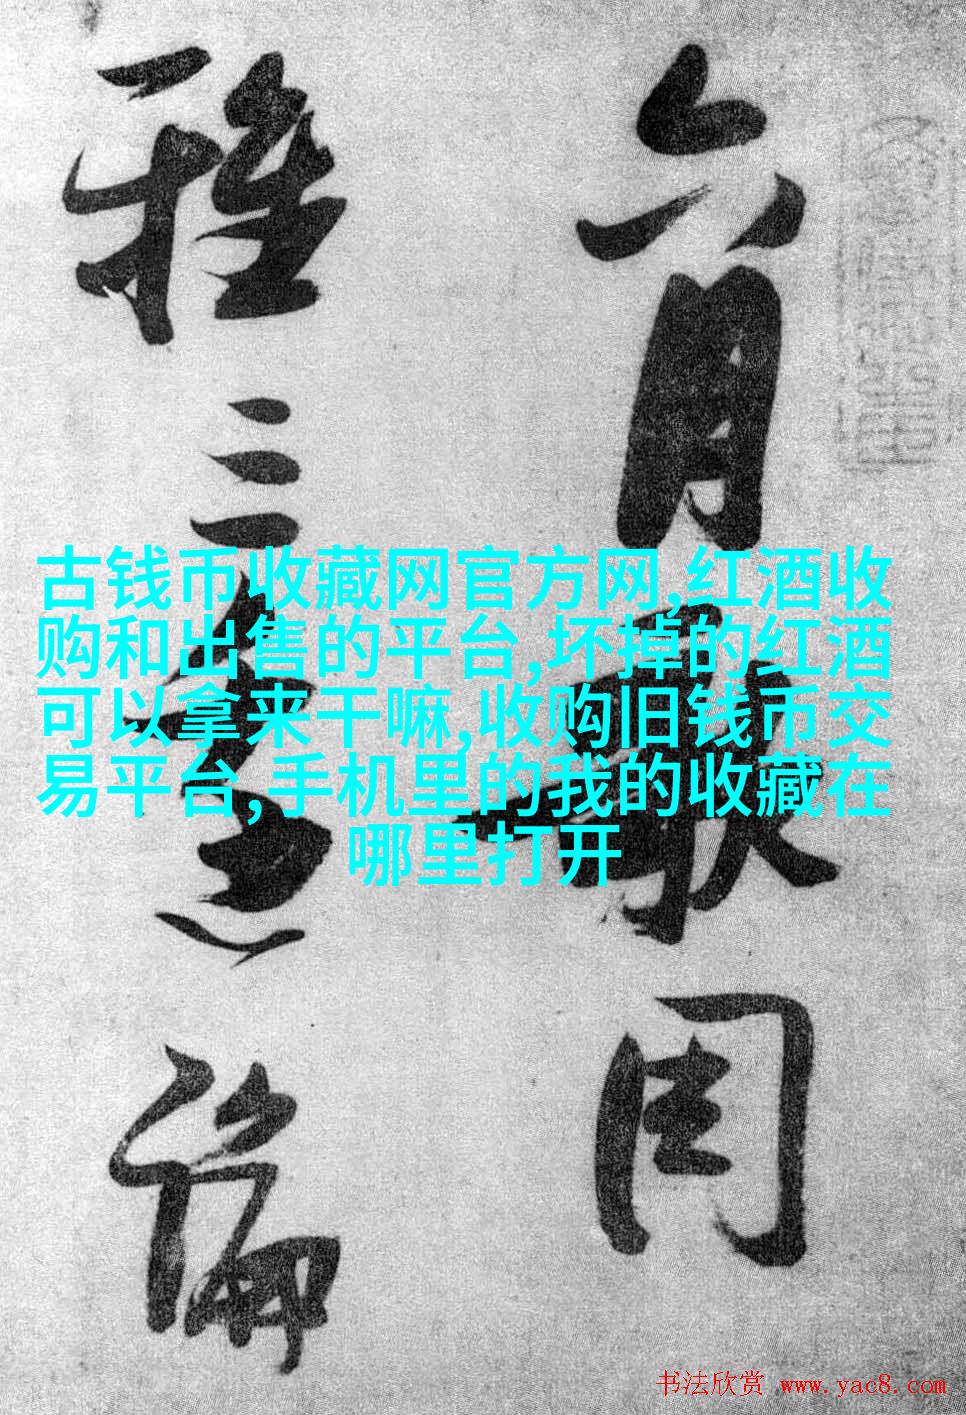 六月
雅三
古钱币收藏网官方网,红酒收
购和出售的平台,坏掉的红酒
可以拿来干嘛,收购旧钱币交
易平台,手机里的我的收藏在
哪里打开
书法欣赏 www.yac8.com